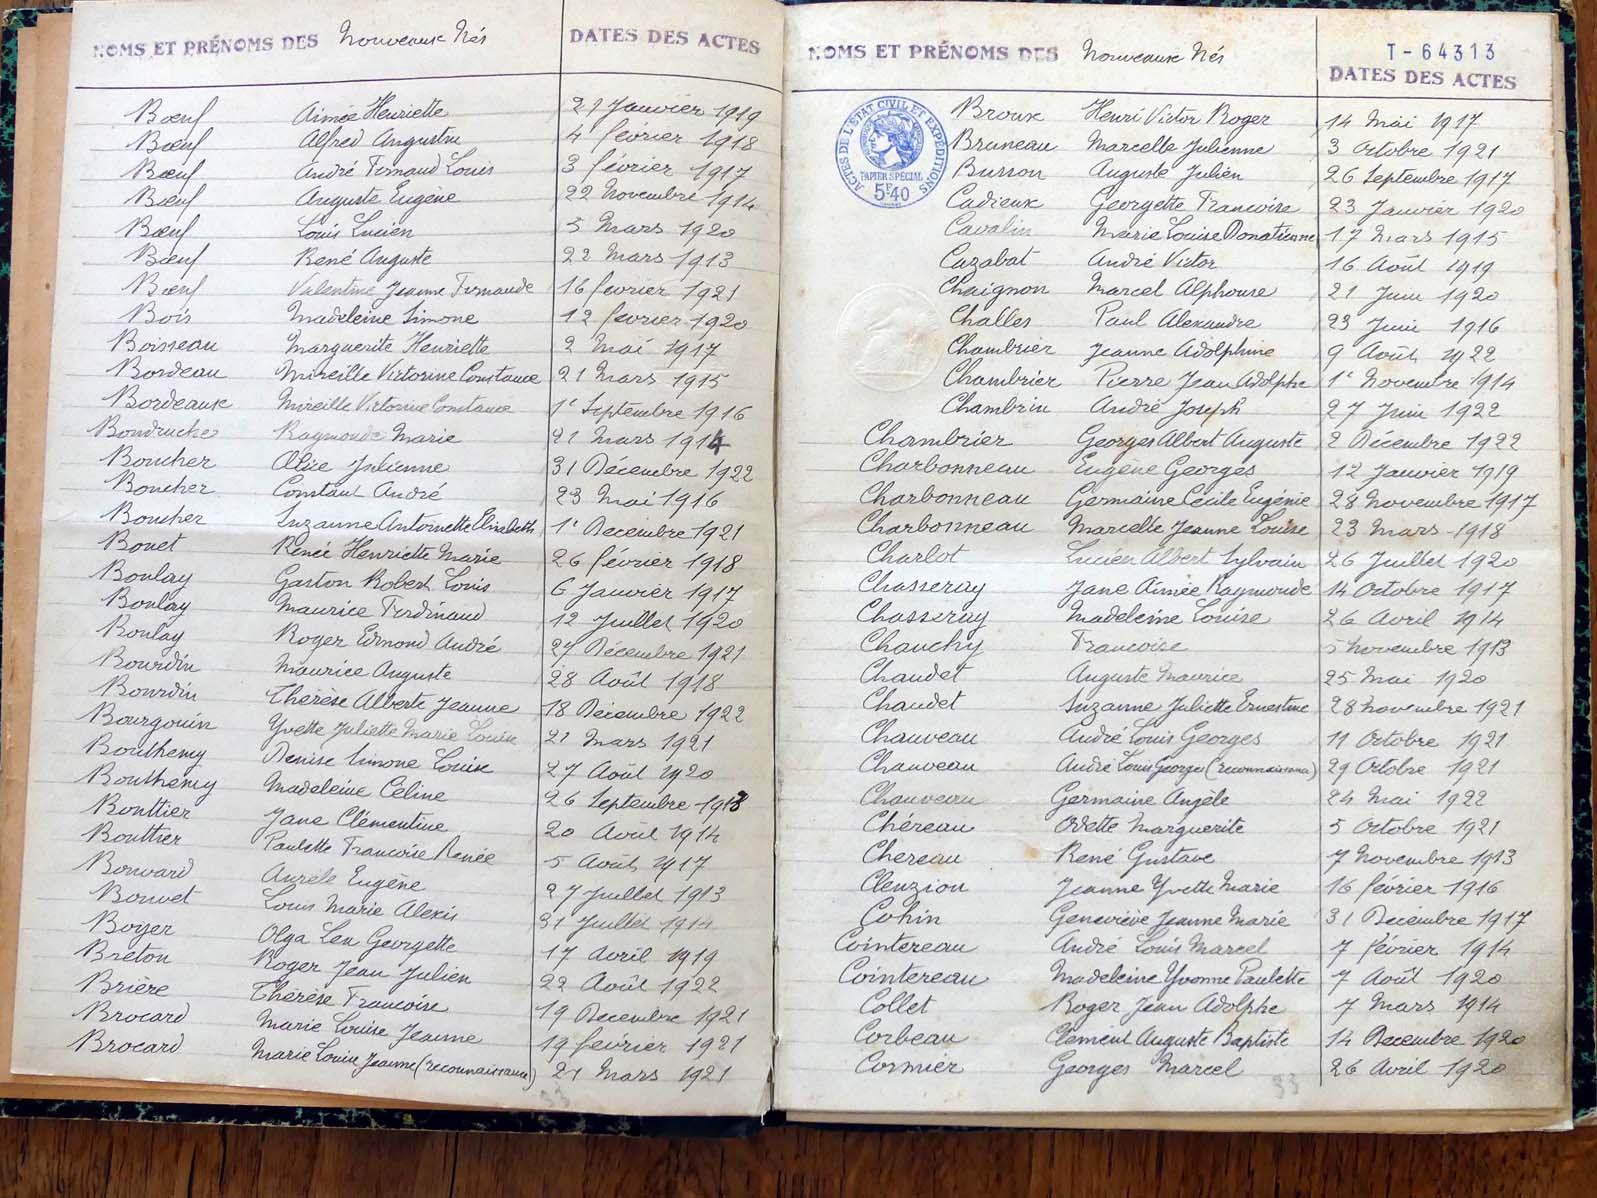 NOMS ET PRÉNOMS DES Nouveaux Nés DATES DES ACTES
Bœuf Aimée Henriette 27 Janvier 1919
Bœuf Alfred Augustin 4 février 1918
Bœuf André Fernand Louis 3 février 1917
Bœuf Auguste Eugène 22 Novembre 1914
Bœuf Louis Lucien 5 Mars 1920
Bœuf René Auguste 22 Mars 1913
Bœuf Valentine Jeanne Fernande 16 février 1921
Bois Madeleine Simone 12 février 1920
Boisseau Marguerite Henriette 2 Mai 1917
Bordeau Mireille Victorine Constance 21 Mars 1915
Bordeaux Mireille Victorine Constance 1er Septembre 1916
Boudruche Raymonde Marie 21 Mars 1914
Boucher Alice Julienne 31 Décembre 1922
Boucher Constant André 23 Mai 1916
Boucher Suzanne Antoinette Elisabeth 1er Decembre 1921
Bouet Renée Henriette Marie 26 février 1918
Boulay Gaston Robert Louis 6 Janvier 1917
Boulay Maurice Ferdinand 12 Juillet 1920
Boulay Roger Edmond André 27 Décembre 1921
Bourdin Maurice Auguste 28 Août 1918
Bourdin Thérèse Alberte Jeanne 18 Décembre 1922
Bourgouin Yvette Juliette Marie Louise 21 Mars 1921
Bouthemy Denise Simone Louise 27 Août 1920
Bouthemy Madeleine Céline 26 Septembre 1918
Bouttier Jane Clémentine 20 Août 1914
Bouttier Paulette Francoise Renée 5 Août 1917
Bouvard Aurèle Eugène 27 Juillet 1913
Bouvet Louis Marie Alexis 31 Juillet 1914
Boyer Olga Lea Georgette 17 Avril 1919
Breton Roger Jean Julien 22 Août 1922
Brière Thérèse Francoise 19 Decembre 1921
Brocard Marie Louise Jeanne 19 février 1921
Brocard Marie Louise Jeanne (reconnaissance) 21 Mars 1921
33
NOMS ET PRÉNOMS DES Nouveaux Nés
T-64313
DATES DES ACTES
ACTES DE L'ÉTAT CIVIL ET EXPÉDITIONS
PAPIER SPÉCIAL
5F40
Broux Henri Victor Roger 14 Mai 1917
Bruneau Marcelle Julienne 3 Octobre 1921
Busson Auguste Julien 26 Septembre 1917
Cadieux Georgette Francoise 23 Janvier 1920
Cavalin Marie Louise Donatienne 17 Mars 1915
Cazabat André Victor 16 Août 1919
Chaignon Marcel Alphonse 21 Juin 1920
Challes Paul Alexandre 23 Juin 1916
Chambrier Jeanne Adolphine 9 Août 1922
Chambrier Pierre Jean Adolphe 1er Novembre 1914
Chambrin André Joseph 27 Juin 1922
Chambrier Georges Albert Auguste 2 Décembre 1922
Charbonneau Eugène Georges 12 Janvier 1919
Charbonneau Germaine Cécile Eugénie 28 Novembre 1917
Charbonneau Marcelle Jeanne Louise 23 Mars 1918
Charlot Lucien Albert Sylvain 26 Juillet 1920
Chasseray Jane Aimée Raymonde 14 Octobre 1917
Chasseray Madeleine Louise 26 Avril 1914
Chauchy Francoise 5 Novembre 1913
Chaudet Auguste Maurice 25 Mai 1920
Chaudet Suzanne Juliette Ernestine 28 Novembre 1921
Chauveau André Louis Georges 11 Octobre 1921
Chauveau André Louis Georges (reconnaissance) 29 Octobre 1921
Chauveau Germaine Angèle 24 Mai 1922
Chéreau Odette Marguerite 5 Octobre 1921
Chereau René Gustave 7 Novembre 1913
Cleuziou Jeanne Yvette Marie 16 février 1916
Cohin Geneviève Jeanne Marie 31 Décembre 1917
Cointereau André Louis Marcel 7 février 1914
Cointereau Madeleine Yvonne Paulette 7 Août 1920
Collet Roger Jean Adolphe 7 Mars 1914
Corbeau Clément Auguste Baptiste 14 Decembre 1920
Cormier Georges Marcel 26 Avril 1920
33